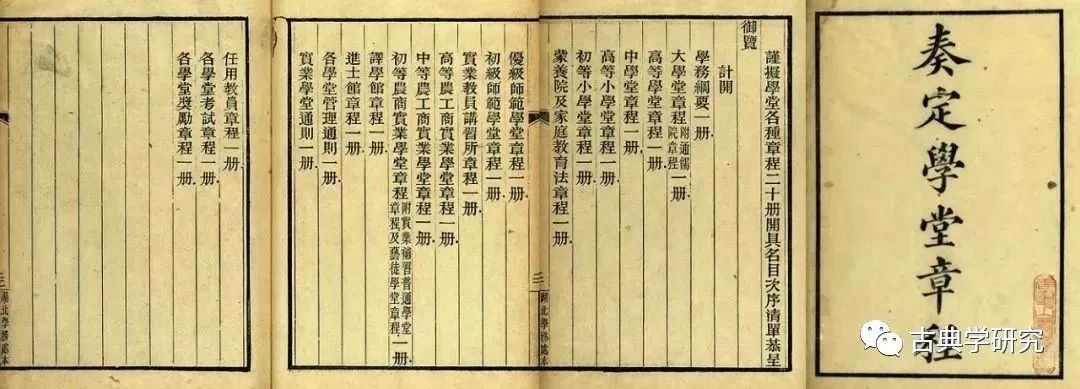 奏定學堂章程
謹擬學堂各種章程二十册開具名目次序清單恭呈
御覽
計開
學務綱要一册
大學堂章程附通儒院章程一册
高等學堂章程一册
中學堂章程一册
高等小學堂章程一册
初等小學堂章程一册
蒙養院及家庭教育法章程一册
二
湖北學務處本
優級師範學堂章程一册
初級師範學堂章程一册
實業教員講習所章程一册
高等農工商實業學堂章程一册
中等農工商實業學堂章程一册
初等農商實業學堂章程附實業補習普通學堂章程及藝徒學堂章程一册
譯學館章程一册
進士館章程一册
各學堂管理通則一册
實業學堂通則一册
任用教員章程一册
各學堂考試章程一册
各學堂獎勵章程一册
三
湖北學務處本
古典学研究